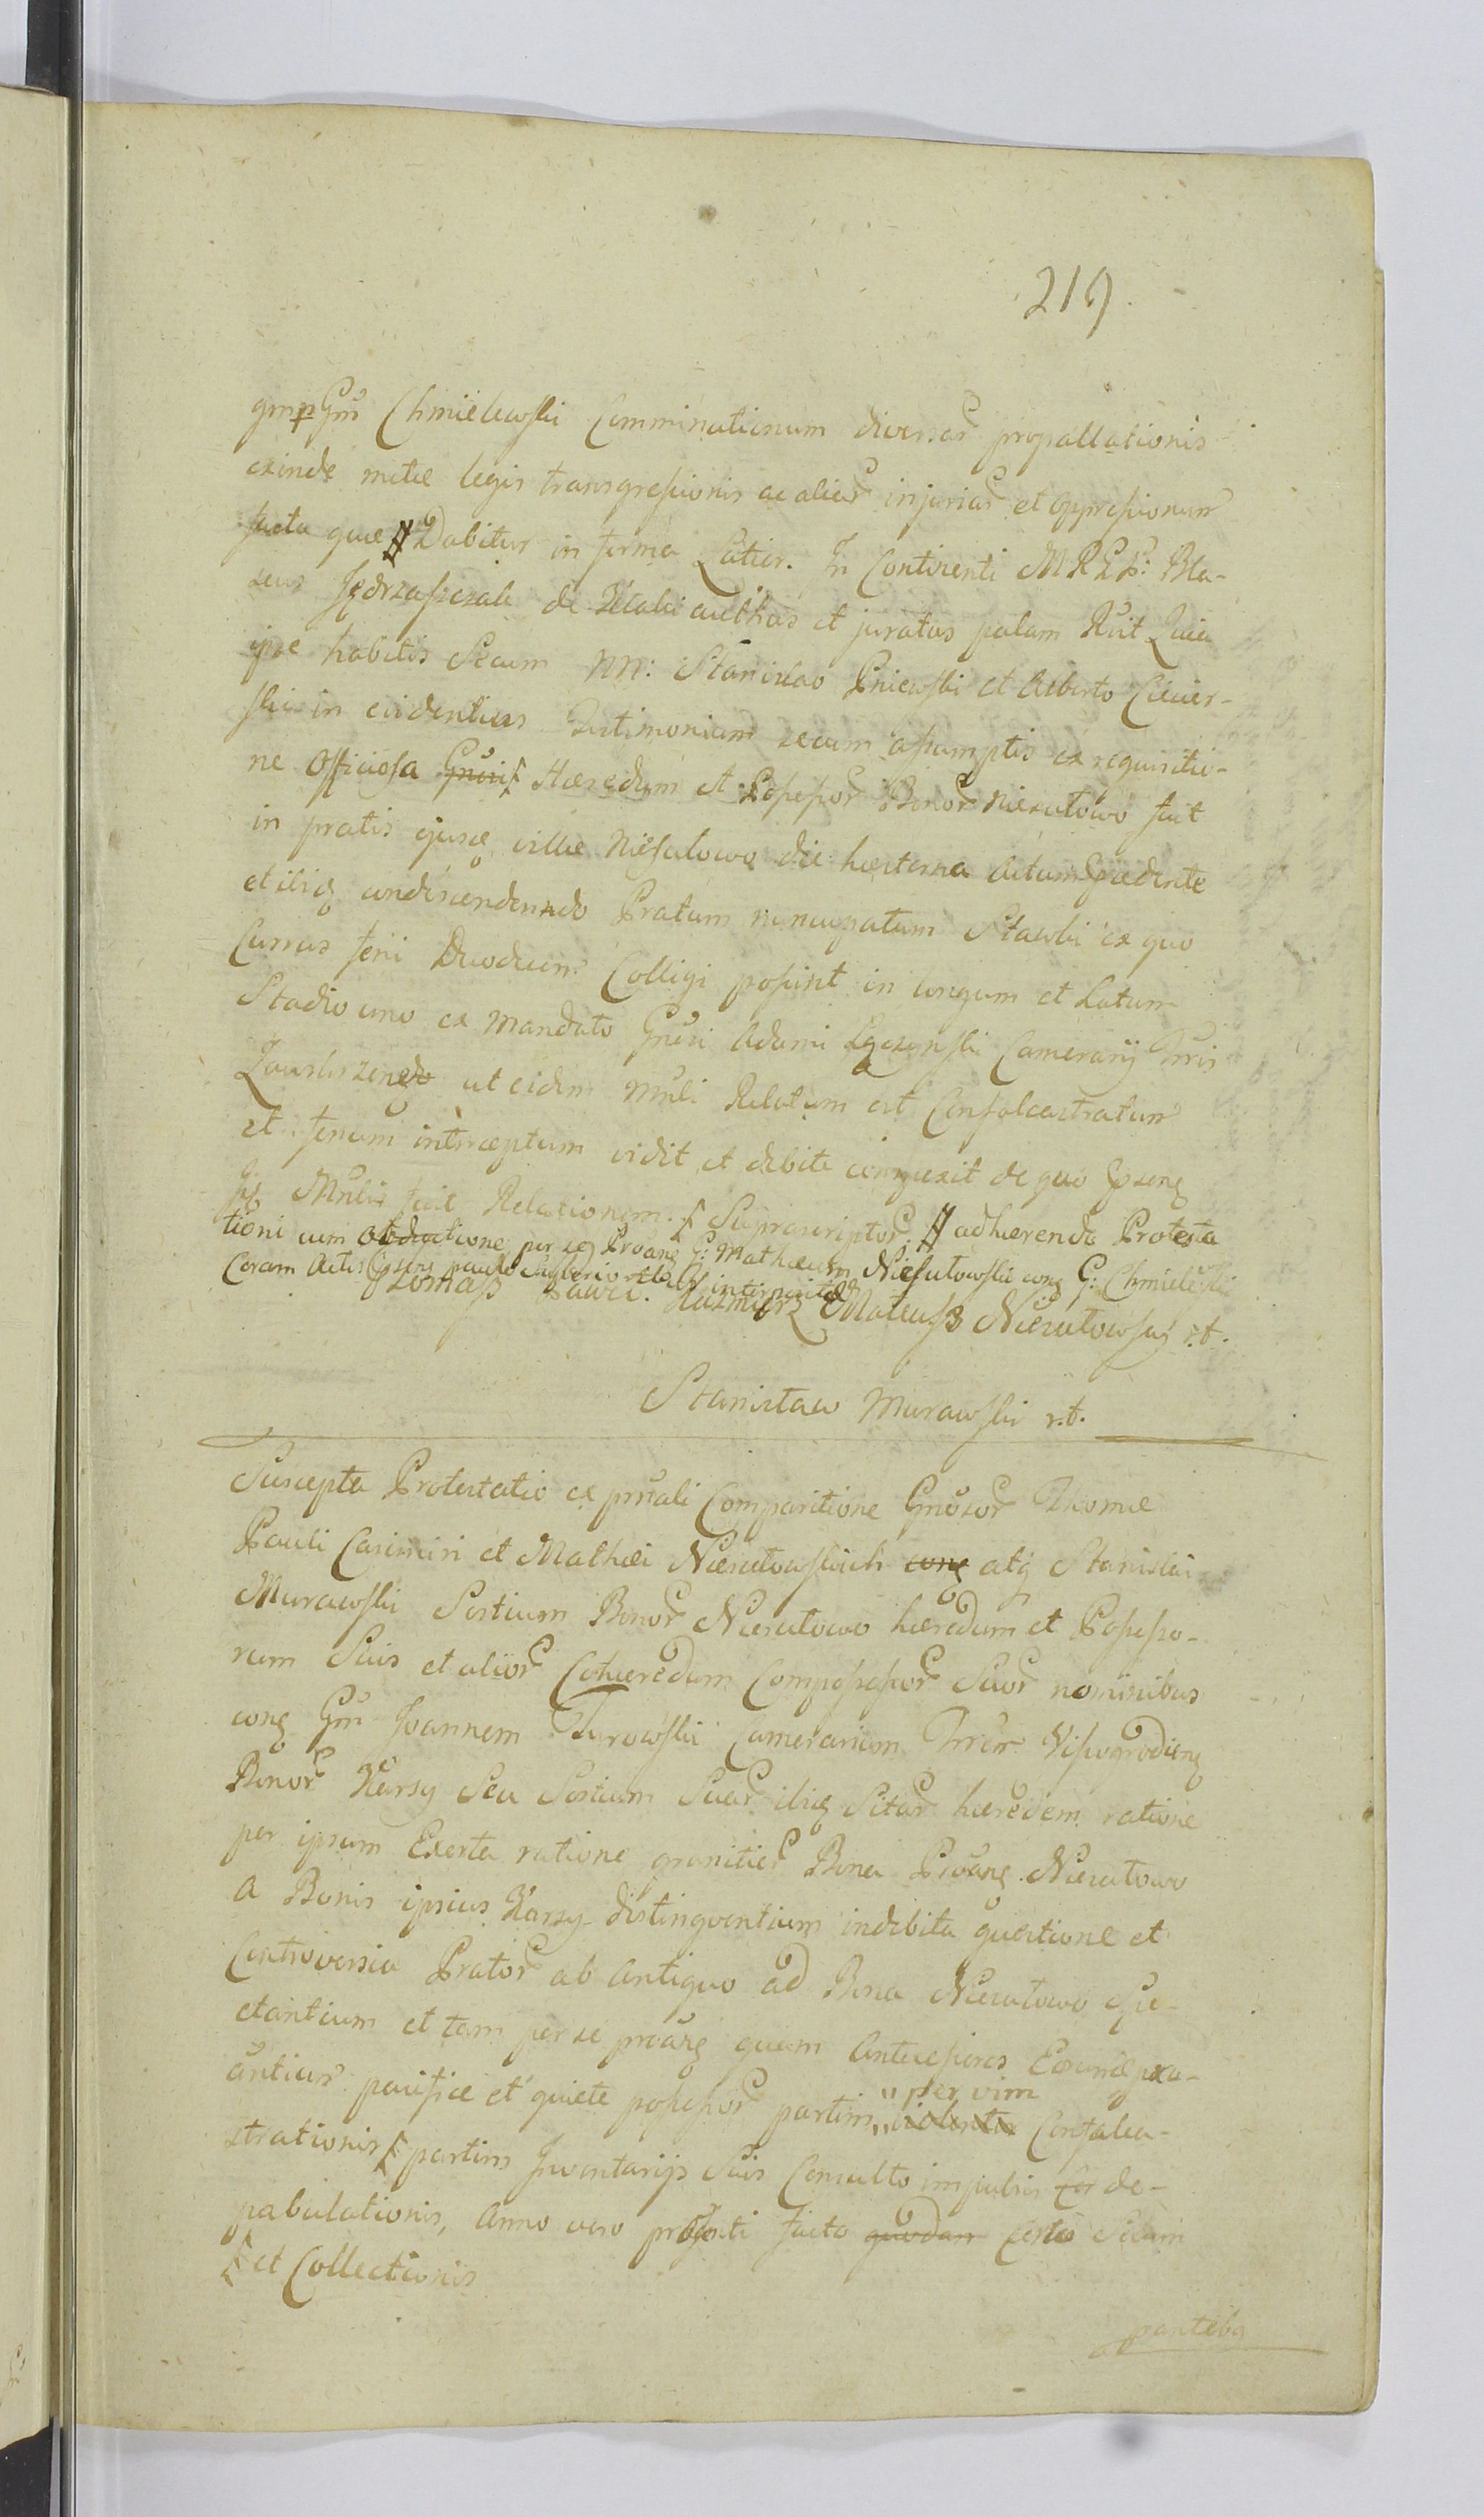 219.
Gnus Chmielewski Comminationum diversar propallationis
exinde metae legis transgressionis ac aliar injuriar et oppressionum
facta quae Dabitur in forma Latior. In Continenti MRGP: Bla-
seus Jędrzaszczak de authus et juratus palam Rvit Quia
ipse habitis Secum NN: Stanislao Pniewski et Alberto Ciecier-
ski in evidentius Testimonium secum assumptis ex requisitio-
ne Officiosa Gnusi Haeredum et Possessor Bonor Niesułowo fuit
in pratis ejusd villae Niesułowo die hesterna Actum praecedente
et ibiq condescendendo Pratum nuncupatum Stawki ex quo
Currus feni Duodecim Colligi possint in longum et Latum
Stadio uno ex Mandato Gnesi Adami Camerarij Trris
ut eidem Mnli Relatum est Confalcastratum
et fenum interceptum vidit et debite conspexit de quo Psens
Js Mnlis fecit Relationem. Suprascriptor adhaerendo Protesta
tioni cum obductione per se Proans G: Mathaeum Niesułowski cong G: Chmielewski
Coram Actis Psens paulo interposita
Tomasz Paweł. Kazmierz Mateusz Niesułowscy r.t.
Stanisław Murawski r.t.
Suscepta Protestatio ex prsnali Comparitione Gnosor Thomae
Pauli Casimiri et Mathaei Niesułowskich cong atq Stanislai
Murawski Sortium Bonor Niesułowo haeredum et Possesso-
rum Suis et alior Cohaeredum Compossessor Suor nominibus
cong Gm Joannem Turowski Camerarium Trrae Vissogrodiens
Bonor Karsy Seu Sortium Suar ibiq Sitar haeredem ratione
per ipsum Exerta ratione granitier Bona Proans Niesułowo
a Bonis ipsius Karsy distingventium indebita questione et
Controversia Prator ab Antiquo ad Bona Niesułowo spe-
ctantium et tam per se proans quam Antecessores Eorund proa-
antium pacifice et quiete possessor partim "per vim
violenta Confalca-
strationis partim Inventarijs Suis Consulto impulsis Eor de-
pabulationis, Anno vero prosenti facto quodam certo Secum
et Collectionis